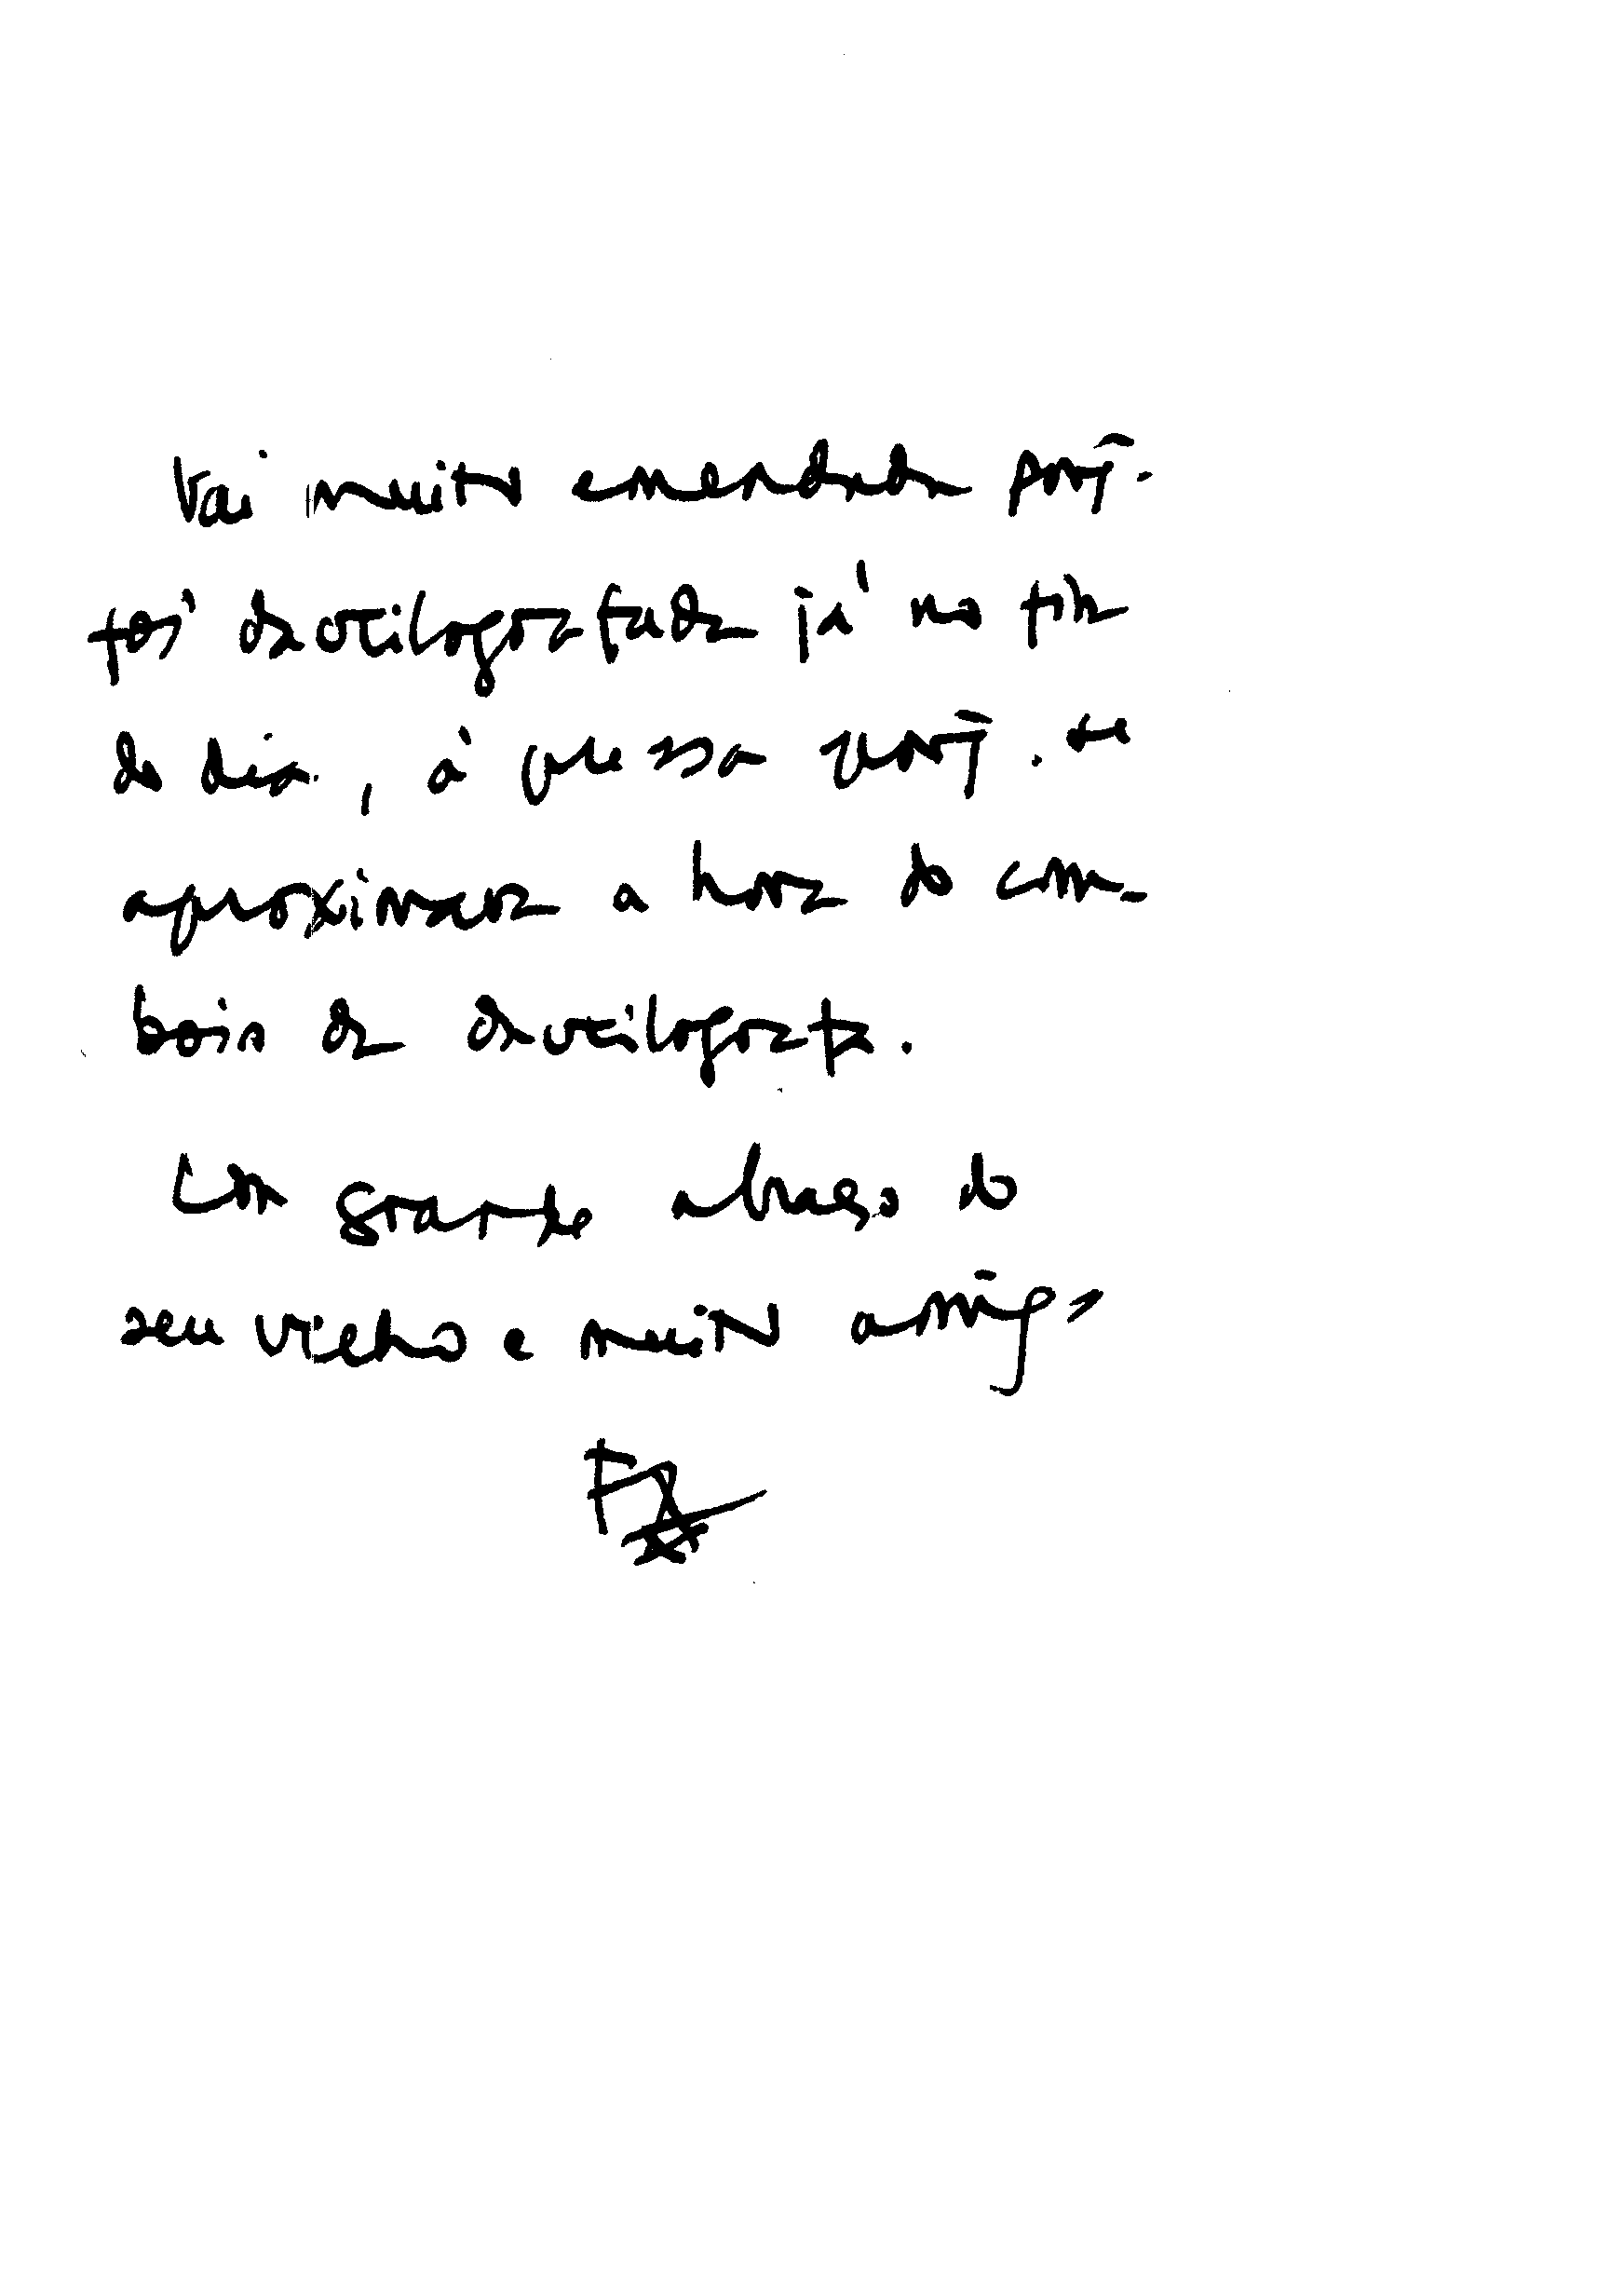 Vai muito emendada porq̃.
foi dactilografada já no fim
do dia, à pressa porq̃. se
aproximava a hora do com-
boio da dactilografa.
Com grande abraço do
seu velho e muito amigo